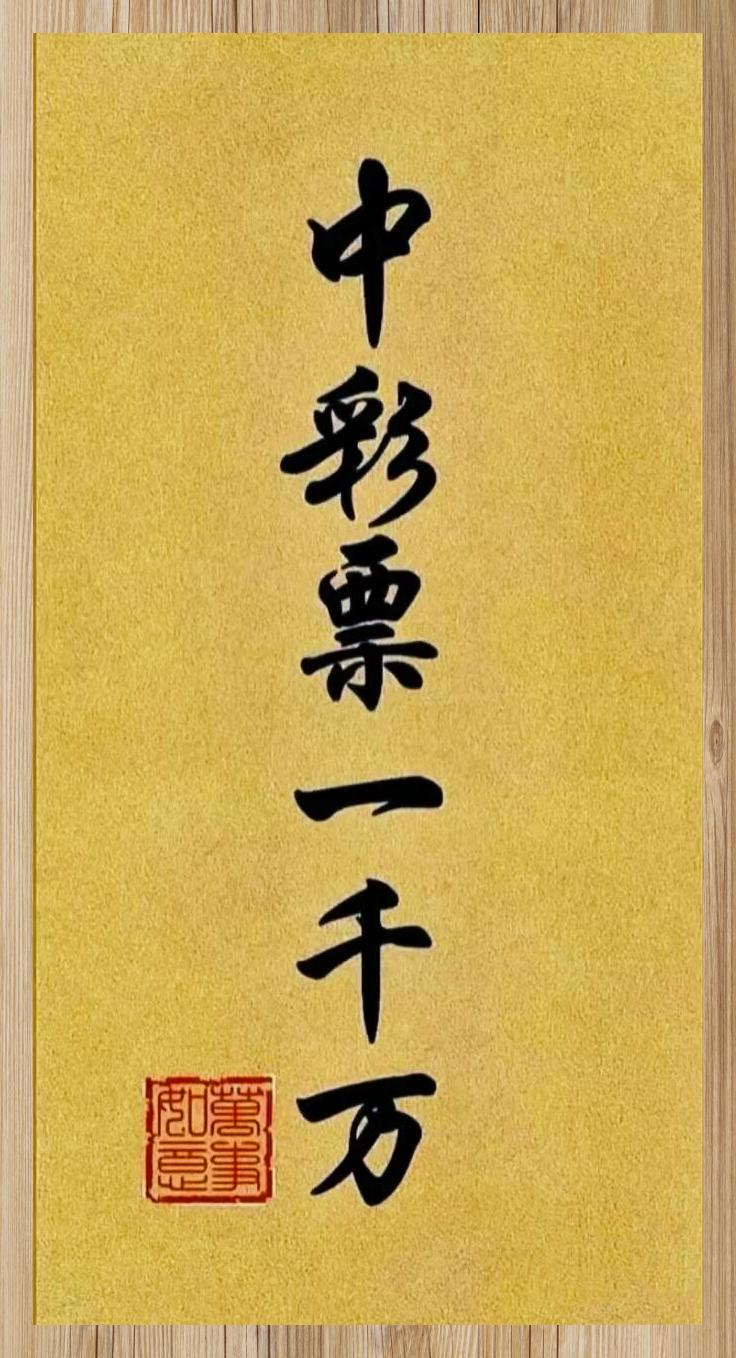 中彩票一千万
萬事
如意